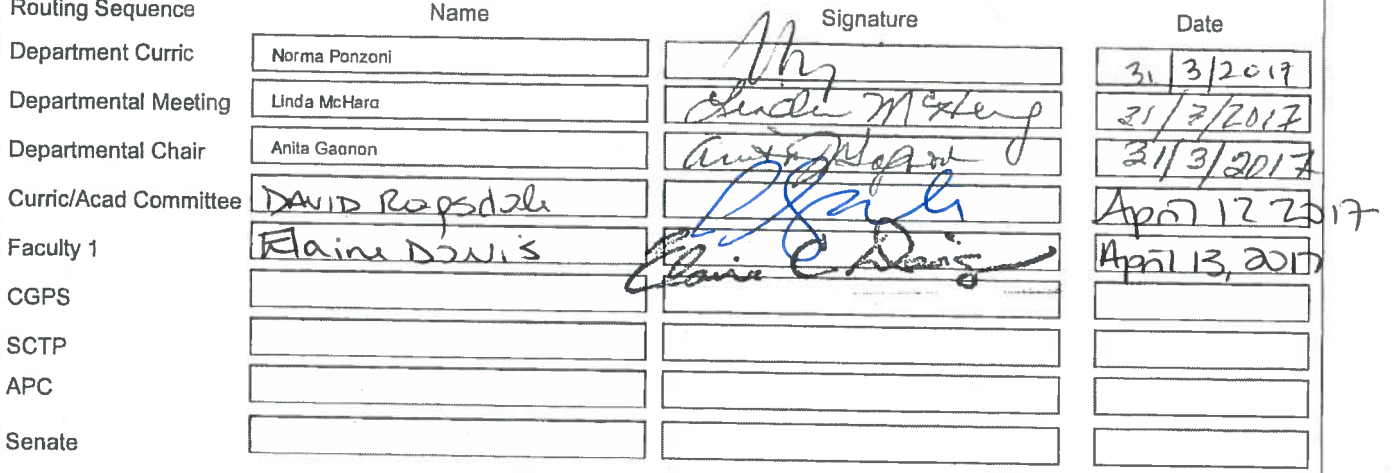 Routing Sequence Name Signature Date
Department Curric Norma Ponzoni 31 3/2017
Departmental Meeting Linda McHarg Linda McHarg 31/3/2017
Departmental Chair Anita Gagnon Anita Gagnon 31/3/2017
Curric/Acad Committee DAVID Ragsdale April 12 2017
Faculty 1 Elaine Davis Elaine C Davis April 13, 2017
CGPS
SCTP
APC
Senate